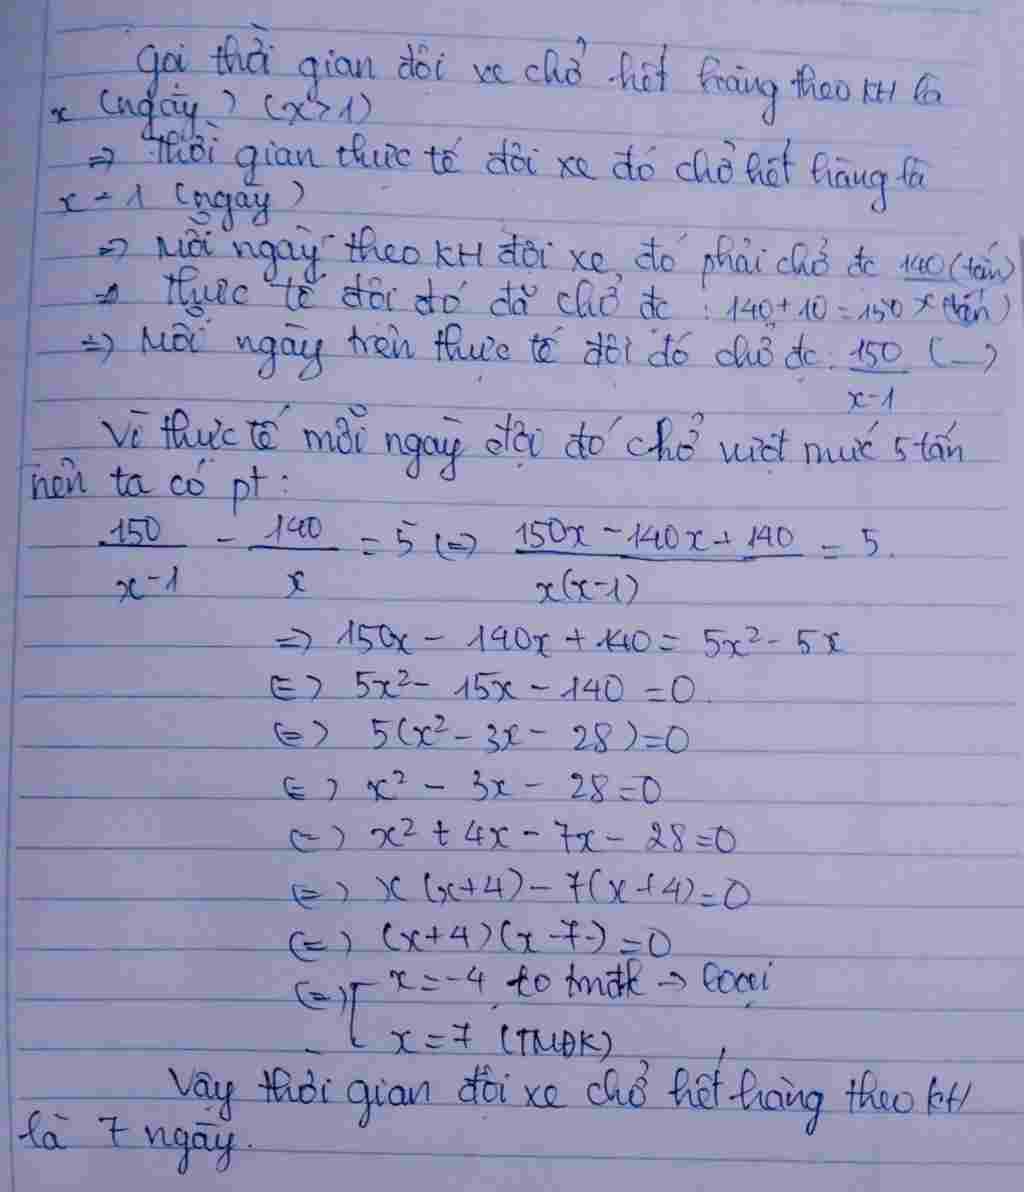 Gọi thời gian đội xe chở hết hàng theo KH là
x (ngày) (x>1)
=> Thời gian thực tế đội xe đó chở hết hàng là
x-1 (ngày)
=> Mỗi ngày theo KH đội xe đó phải chở đc 140/x (tấn)
=> Thực tế đội đó đã chở đc : 140+10=150 (tấn)
=> Mỗi ngày trên thực tế đội đó chở đc: 150/(x-1) (—)
Vì thực tế mỗi ngày đội đó chở vượt mức 5 tấn
nên ta có pt:
150/(x-1) - 140/x = 5 (=) (150x-140x+140)/(x(x-1)) = 5.
=> 150x - 140x + 140 = 5x² - 5x
(=) 5x² - 15x - 140 = 0
(=) 5(x² - 3x - 28)=0
(=) x² - 3x - 28=0
(=) x² + 4x - 7x - 28=0
(=) x(x+4) - 7(x+4)=0
(=) (x+4)(x-7)=0
(=) [ x=-4 ko tmđk -> loại
x=7 (TMĐK)
Vậy thời gian đội xe chở hết hàng theo KH
là 7 ngày.